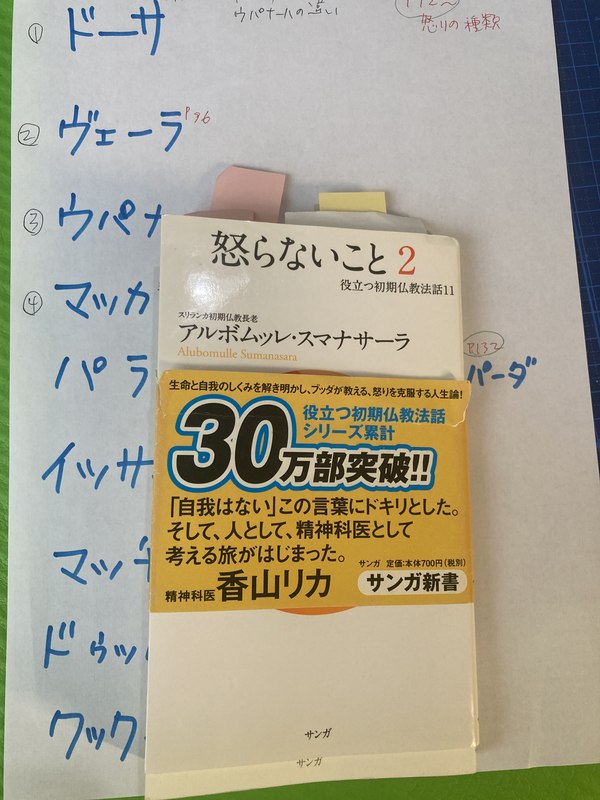 ウパナーハの違い
怒りの種類
① ドーサ
② ヴェーラ P96
③ ウパナ
④ マッカ
パラ
P132
パーダ
イッサ
マッ
ドゥッ
クック
怒らないこと 2
役立つ初期仏教法話11
スリランカ初期仏教長老
アルボムッレ・スマナサーラ
Alubomulle Sumanasara
生命と自我のしくみを解き明かし、ブッダが教える、怒りを克服する人生論!
役立つ初期仏教法話
シリーズ累計
30万部突破!!
「自我はない」この言葉にドキリとした。
そして、人として、精神科医として
考える旅がはじまった。
精神科医 香山リカ
サンガ 定価:本体700円(税別)
サンガ新書
サンガ
サンガ